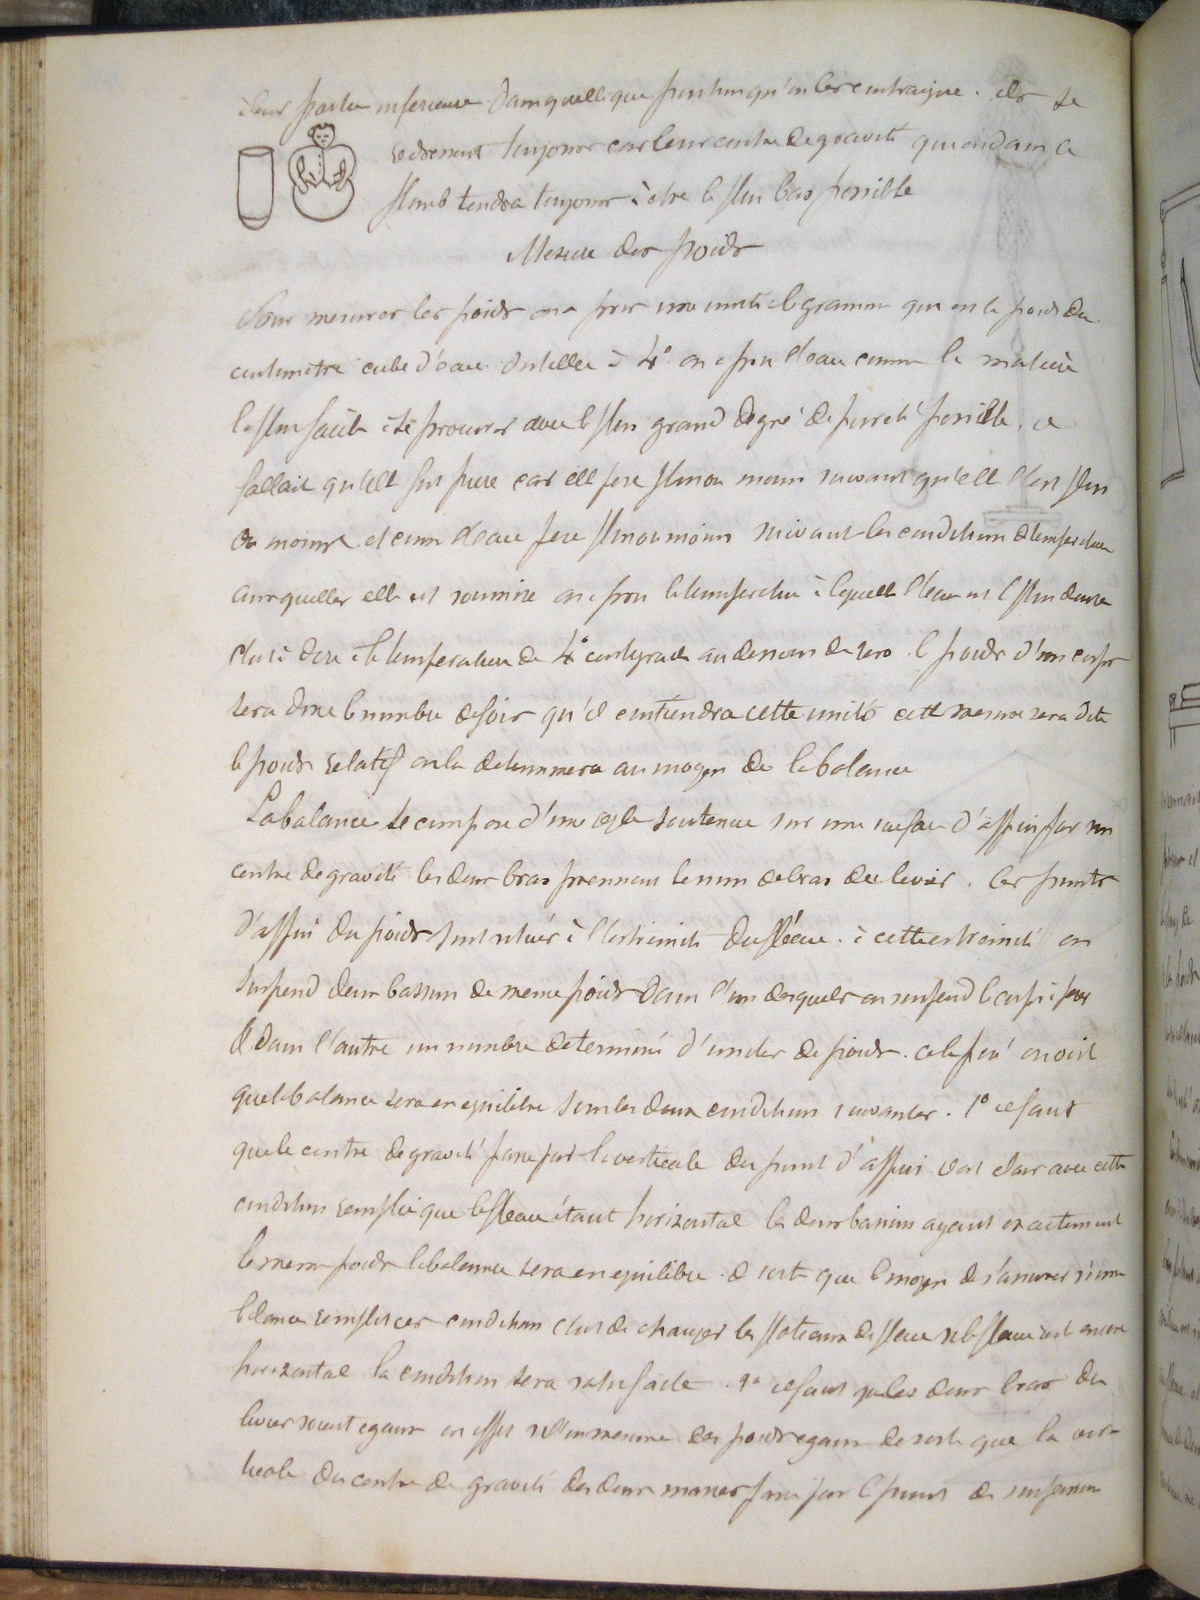 leur partie inferieure dans quelle que position qu'on les contraigne. ils se
redressent toujours car leur centre de gravité qui est dans le
plomb tendra toujours à etre le plus bas possible
Mesure des poids
Pour mesurer les poids on a pris une unité le gramme qui est le poids du
centimetre cube d'eau distillee à 4° on a pris l'eau comme la matiere
la plus facile à se procurer avec le plus grand degré de pureté possible, il
fallait qu'elle fut pure car elle pese plus ou moins suivant qu'elle l'est plus
ou moins et comme l'eau pese plus ou moins suivant les conditions de temperature
auxquelles elle est soumise on a pris la temperature à laquelle l'eau est le plus dense
c'est à dire à la temperature de 4° centigrade au dessous de zero. le poids d'un corps
sera donc le nombre de fois qu'il contiendra cette unité cette mesure sera dite
le poids relatif on la determinera au moyen de la balance
La balance se compose d'une regle soutenue sur une surface d'appui par son
centre de gravité les deux bras prennent le nom de bras de levier. les points
d'appui du poids sont situés à l'extremité du fléau. à cette extremité on
suspend deux bassins de meme poids dans l'un desquels on suspend le corps à peser
et dans l'autre un nombre determiné d'unites de poids. cela posé on voit
que la balance sera en equilibre sous les deux conditions suivantes. 1° il faut
que le centre de gravité passe par la verticale du point d'appui il est clair avec cette
condition remplie que le fleau étant horizontal les deux bassins ayant exactement
le meme poids la balance sera en equilibre. de sorte que le moyen de s'assurer si une
balance remplit ces conditions c'est de changer les plateaux de place si le fleau est encore
horizontal la condition sera satisfaite. 2° il faut que les deux bras du
levier soient egaux en effet si l'on mesure des poids egaux de sorte que la ver-
ticale du centre de gravité des deux masses passe par le point de suspension